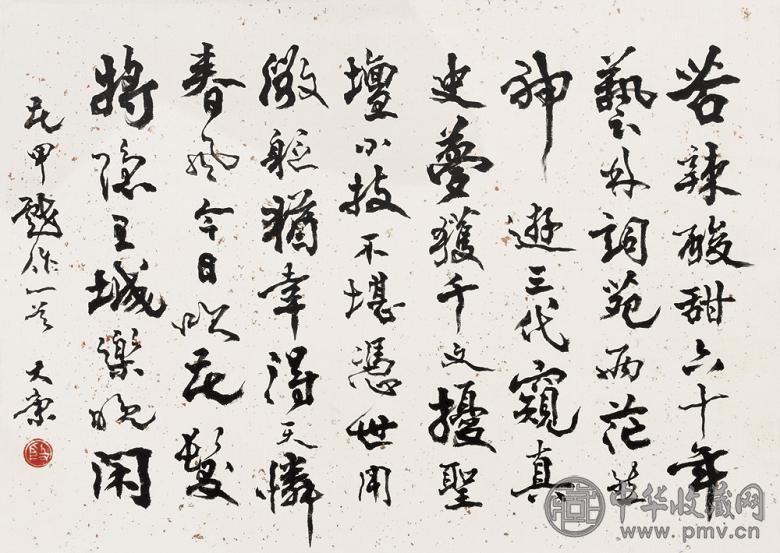 苦辣酸甜六十年
藝林詞苑兩茫然
神遊三代窺真
史夢獲千文擾聖
壇小技不堪憑世用
微軀猶幸得天憐
春風今日吹花髮
將隱王城樂晚閑
花甲戲作一首 大康
中华收藏网
www.pmv.cn